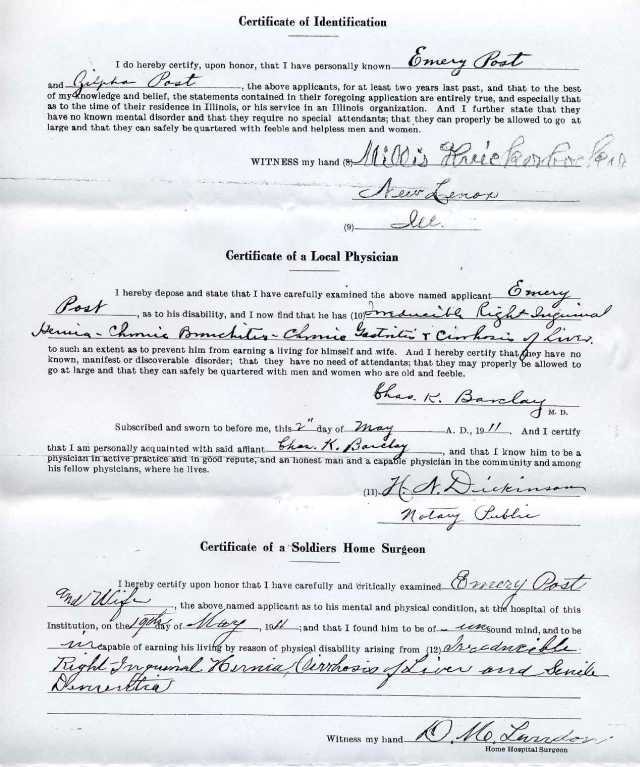 Certificate of Identification
I do hereby certify, upon honor, that I have personally known Emery Post
and Zilpha Post, the above applicants, for at least two years last past, and that to the best
of my knowledge and belief, the statements contained in their foregoing application are entirely true, and especially that
as to the time of their residence in Illinois, or his service in an Illinois organization. And I further state that they
have no known mental disorder and that they require no special attendants; that they can properly be allowed to go at
large and that they can safely be quartered with feeble and helpless men and women.
WITNESS my hand (8) Millis
New Lenox
(9) Ill.
Certificate of a Local Physician
I hereby depose and state that I have carefully examined the above named applicant Emery
Post, as to his disability, and I now find that he has (10) Irreducible Right Inguinal
Hernia - Chronic Bronchitis - Chronic Gastritis & Cirrhosis of Liver.
to such an extent as to prevent him from earning a living for himself and wife. And I hereby certify that they have no
known, manifest or discoverable disorder; that they have no need of attendants; that they may properly be allowed to
go at large and that they can safely be quartered with men and women who are old and feeble.
Chas. K. Barclay
M. D.
Subscribed and sworn to before me, this 2" day of May A. D., 1911. And I certify
that I am personally acquainted with said affiant Chas. K. Barclay, and that I know him to be a
physician in active practice and in good repute, and an honest man and a capable physician in the community and among
his fellow physicians, where he lives.
(11) H. N. Dickinson
Notary Public
Certificate of a Soldiers Home Surgeon
I hereby certify upon honor that I have carefully and critically examined Emery Post
and Wife, the above named applicant as to his mental and physical condition, at the hospital of this
Institution, on the 19th day of May, 1911; and that I found him to be of unsound mind, and to be
incapable of earning his living by reason of physical disability arising from (12) Irreducible
Right Inguinal Hernia, Cirrhosis of Liver and Senile
Dementia
Witness my hand D. M. Landon
Home Hospital Surgeon